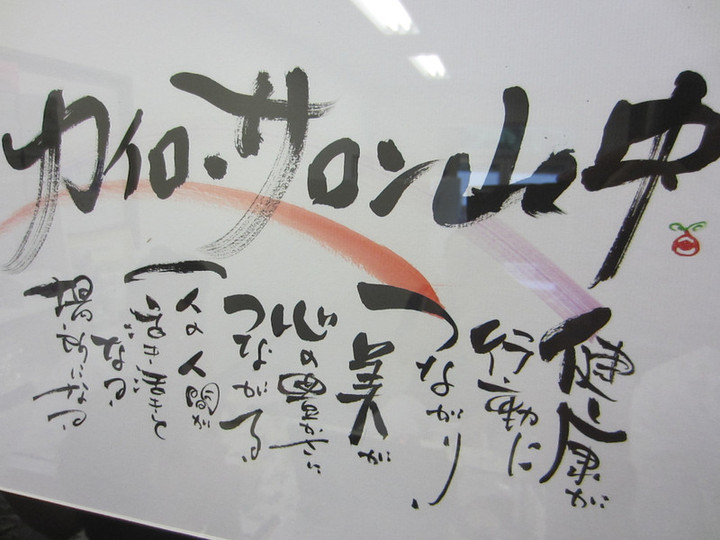 カイロ・サロン山中
健康が
行動に
つながり、
美が
心の豊かさに
つながる。
一人の人間が
活き活きと
なる
場所になる。